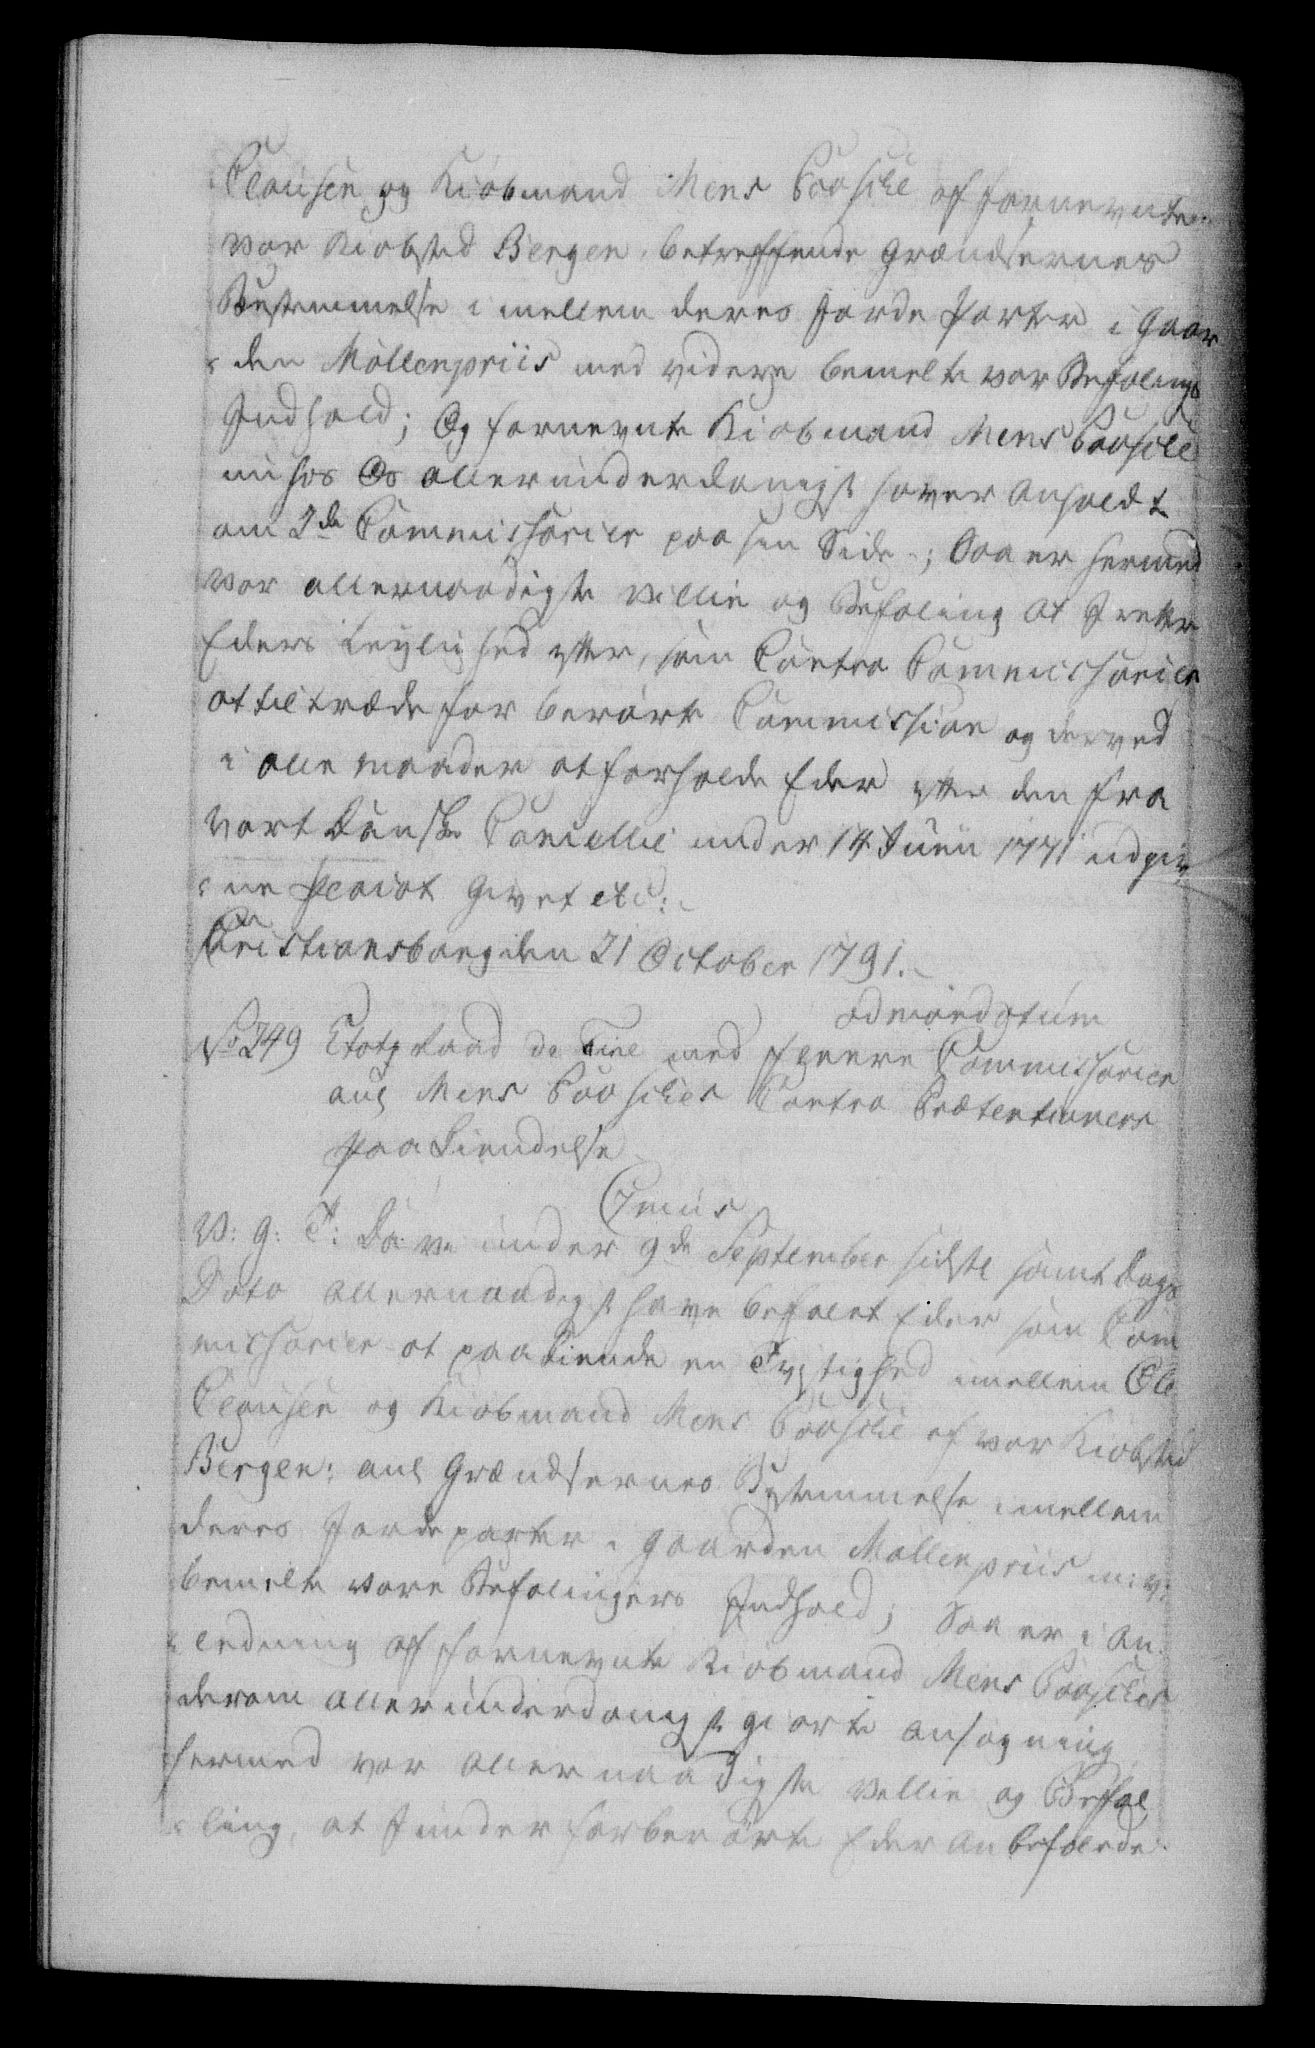 Clausen og Kiøbmand Mens Paasche af fornevnte
vor Kiøbsted Bergen, betreffende Grændsernes
Bestemmelse i mellem deres Jorde Parter i Gaar
den Möllenpriis med videre bemelte vor Befalings
Indhold; Og fornevnte Kiøbmand Mens Paasche
nu hos Os allerunderdanigst haver Anholdt
om 2de Commissarier paa sin Side; Saa er hermed
vor allernaadigste Villie og Befaling At I rette
Eders Leylighed efter, som Contra Commissarier
at tiltræde forberørte Commission og derved
i alle Maader at forholde Eder efter den fra
Vort Danske Cancellie under 14 Junii 1771 udgiv
ne Placat Givet etc:
Christiansborg den 21 October 1791.
ad mandatum
No 349 Etatzraad de Fine med fleere Commissarier
ang Mens Paasches Contra Prætentioners
paa Kiendelse
C7mus
V: G: T: Da Vi under 9de September sidste samt Dags
Dato Allernaadigst have befalet Eder som Com
missarier at paakiende en Tvistighed imellem Ole
Clausen og Kiøbmand Mens Paasche af vor Kiøbsted
Bergen: ang Grændsernes Bestemmelse imellem
deres Jordeparter i Gaarden Möllenpriis m: v:
bemelte vore Befalingers Indhold; Saa er i An
ledning af fornevnte Kiøbmand Mens Paasches
derom allerunderdanigst giorte Ansøgning
hermed vor allernaadigste Villie og Befal
ling, at I under forberørte Eder anbefalede